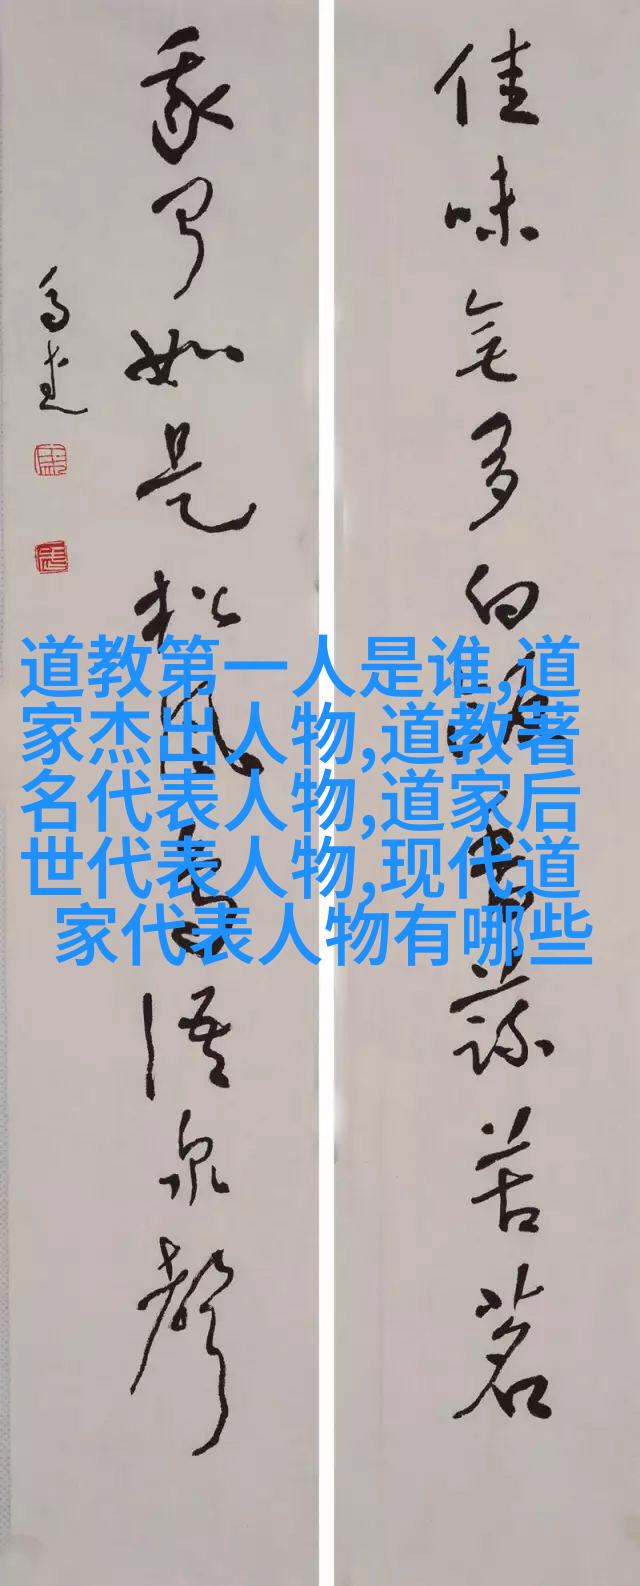 佳味無多白飯香蔬苦茗
我聞如是松風鳥語泉聲
道教第一人是谁,道
家杰出人物,道教著
名代表人物,道家后
世代表人物,现代道
家代表人物有哪些